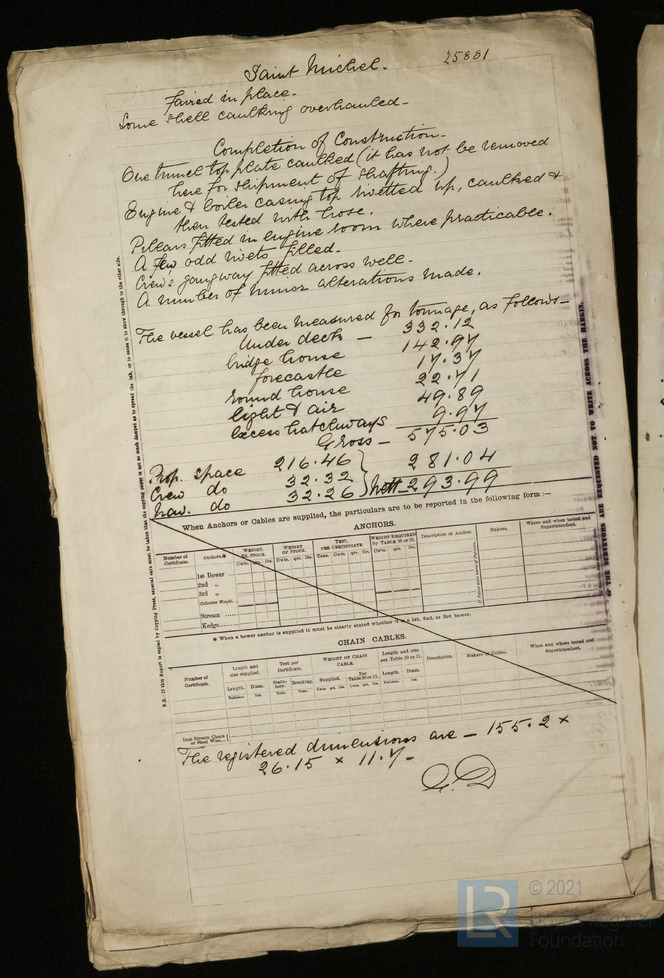 Saint Michel. 25881
Faired in place.
Some shell caulking overhauled.
Completion of Construction.
One tunnel top plate caulked (it has not be removed
here for shipment of shafting.)
Engine & boiler casing top rivetted up, caulked &
then tested with hose.
Pillars fitted in engine room where practicable.
A few odd rivets filled.
Crew's gangway fitted across well.
A number of minor alterations made.
The vessel has been measured for tonnage, as follows—
Under deck — 332.12
bridge house 142.97
forecastle 17.37
round house 22.71
light & air 49.89
excess hatchways 9.97
Gross — 575.03
Prop. space 216.46
Crew do 32.32 281.04
Nav. do 32.26 Nett — 293.99
When Anchors or Cables are supplied, the particulars are to be reported in the following form:—
ANCHORS.
Number of Certificate. Anchors.* WEIGHT, EX. STOCK. WEIGHT OF STOCK. TEST, PER CERTIFICATE WEIGHT REQUIRED by TABLE 30 or 31. Description of Anchor. Makers. Where and when tested and Superintendent.
Cwts. qrs. lbs. Cwts. qrs. lbs. Tons. Cwts. qrs. lbs. Cwts. qrs. lbs.
1st Bower
2nd „
3rd „
Collective Weight.
Stream
Kedge
* When a bower anchor is supplied it must be clearly stated whether it is a 1st, 2nd, or 3rd bower.
CHAIN CABLES.
Number of Certificate. Length and size supplied. Test per Certificate. WEIGHT OF CHAIN CABLE. Length and size per Table 30 or 31. Description. Makers of Cables. Where and when tested and Superintendent.
Length. Diam. Statutory. Breaking. Supplied. Per Table 30 or 31. Length. Diam.
Iron Stream Chain or Steel Wire
The registered dimensions are — 155.2 ×
26.15 × 11.7 —
N.B.—If this Report is copied by Copying Press, especial care must be taken that the copying paper is not so much damped as to spread the ink, or to cause it to show through to the other side.
THE SURVEYORS ARE REQUESTED NOT TO WRITE ACROSS THE MARGIN.
LR
© 2021
Lloyd's Register
Foundation